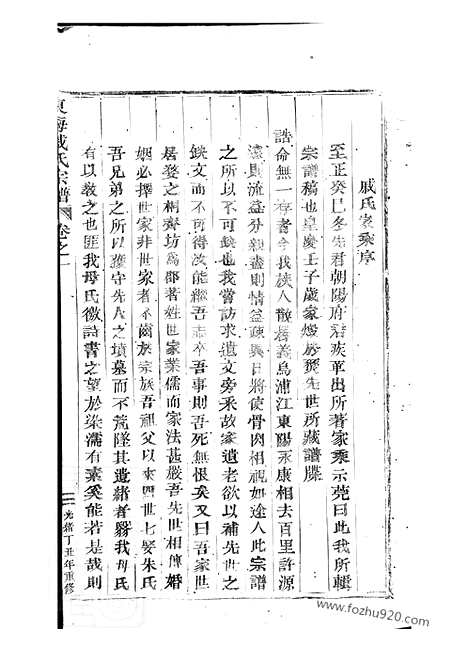 戚氏家乘序
至正癸巳冬先君朝陽府君疾革出所著家乘示莞曰此我所輯
宗譜稿也皇慶壬子歲家燬於爕先世所藏譜牒
誥命無一存者今我族人散居義烏浦江東陽永康相去百里許源
遠則流益分親盡則情益疎興日將使骨肉相視如途人此宗譜
之所以不可缺也我嘗訪求遺文旁釆故家遺老欲以補先世之
缺文而不可得汝能繼吾志卒吾事則吾死無恨矣又曰吾家世
居婺之桐齊坊為郡著姓世家業儒而家法甚嚴吾先世相傳婚
姻必擇世家非世家者不齒於宗族吾祖父以來四世七娶朱氏
吾兄弟之所以獲守先人之墳墓而不荒墜其遺緒者繄我母氏
有以敎之也匪我母氏徽詩書之望於染濡有素奚能若是哉則
東海戚氏宗譜 卷之一
光緒丁丑年重修
https://www.fozhu920.com/